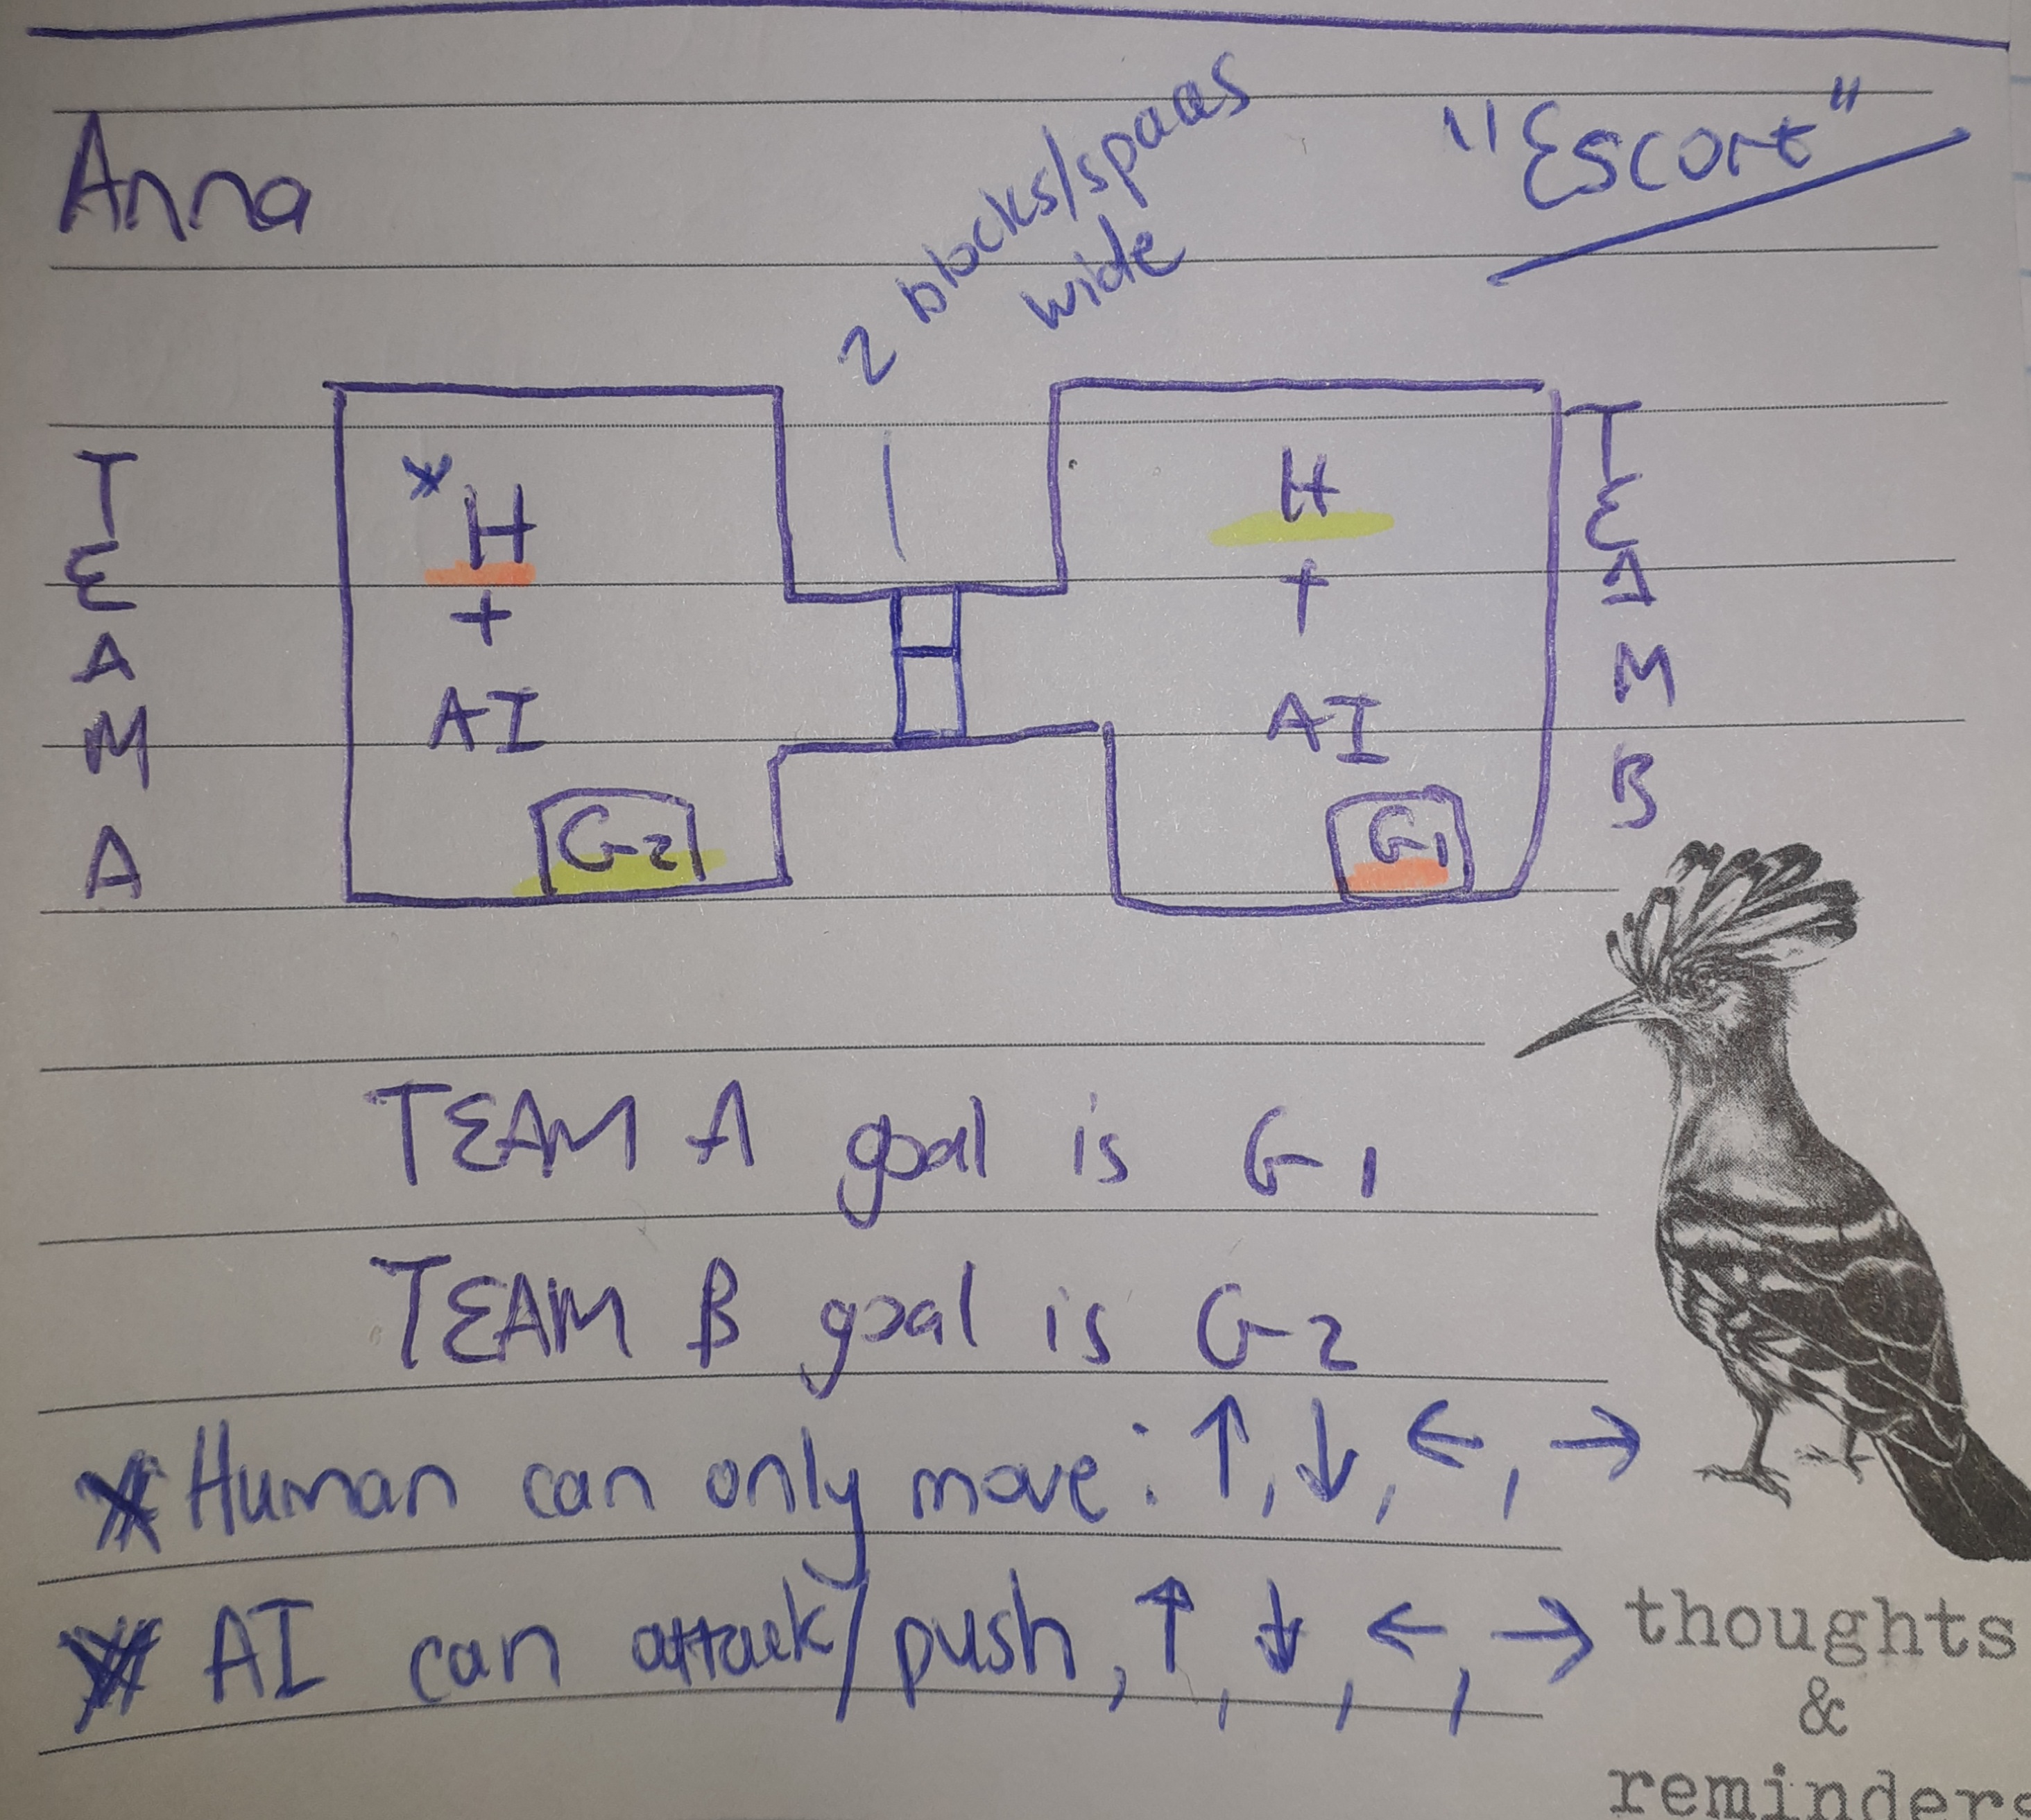 Anna
"Escort"
2 blocks/spaces
wide
TEAM A
*H
+
AI
G2
H
+
AI
G1
TEAM B
TEAM A goal is G1
TEAM B goal is G2
* Human can only move: ↑, ↓, ←, →
* AI can attack/push, ↑, ↓, ←, →
thoughts
&
reminders